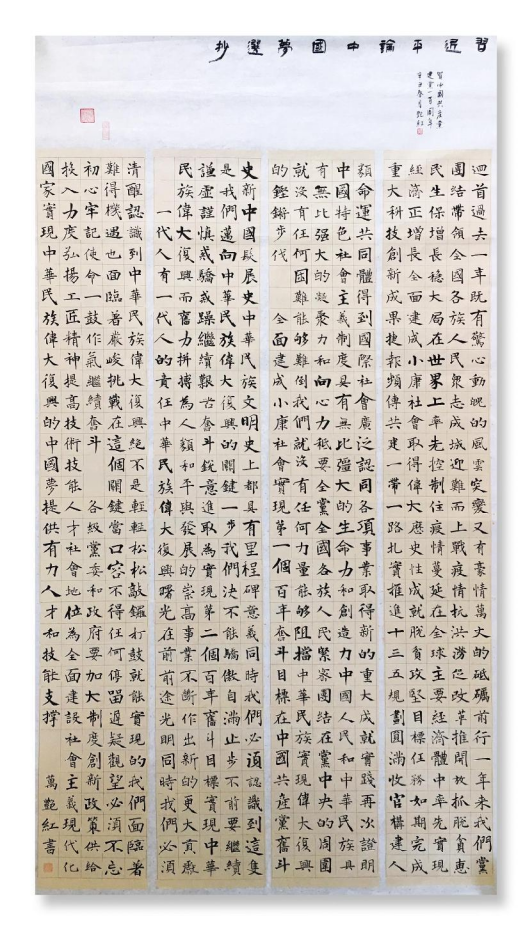 習近平論中國夢選抄
賀中國共產黨
建黨一百周年
辛丑春月艷紅
迴首過去一年既有驚心動魄的風雲突變又有豪情萬丈的砥礪前行一年来我們黨
團结帶領全國各族人民眾志成城迎難而上戰疫情抗洪澇促改革推開放抓脫貧惠
民生保增長穩大局在世界上率先控制住疫情蔓延在全球主要經濟體中率先實現
經濟正增長全面建成小康社會取得偉大歷史性成就脫貧攻堅目標任務如期完成
重大科技創新成果捷報頻傳共建一帶一路扎實推進十三五規劃圓滿收官構建人
類命運共同體得到國際社會廣泛認同各項事業取得新的重大成就實踐再次證明
中國特色社會主義制度具有無比強大的生命力和創造力中國人民和中華民族具
有無比强大的凝聚力和向心力祗要全黨全國各族人民緊密團结在黨中央的周圍
就没有任何困難能够難倒我們就没有任何力量能够阻擋中華民族實現偉大復興
的鏗鏘步伐 全面建成小康社會實現第一個百年奮斗目標在中國共產黨奮斗
史新中國發展史中華民族文明史上都具有里程碑意義同時我們必須認識到這隻
是我們邁向中華民族偉大復興的關鍵一步我們決不能驕傲自滿止步不前要繼續
謙虛謹慎戒驕戒躁繼續艱苦奮斗銳意進取為實現第二個百年奮斗目標實現中華
民族偉大復興而奮力拼搏為人類和平與發展的崇高事業不斷作出新的更大貢獻
一代人有一代人的責任中華民族偉大復興曙光在前前途光明同時我們必須
清醒認識到中華民族偉大復興絕不是輕輕松松敲鑼打鼓就能實現的我們面臨著
難得機遇也面臨著嚴峻挑戰在這個關鍵當口容不得任何停留遲疑觀望必須不忘
初心牢記使命一鼓作氣繼續奮斗 各級黨委和政府要加大制度創新政策供給
投入力度弘揚工匠精神提高技術技能人才社會地位為全面建設社會主義現代化
國家實現中華民族偉大復興的中國夢提供有力人才和技能支撐 萬艷紅書